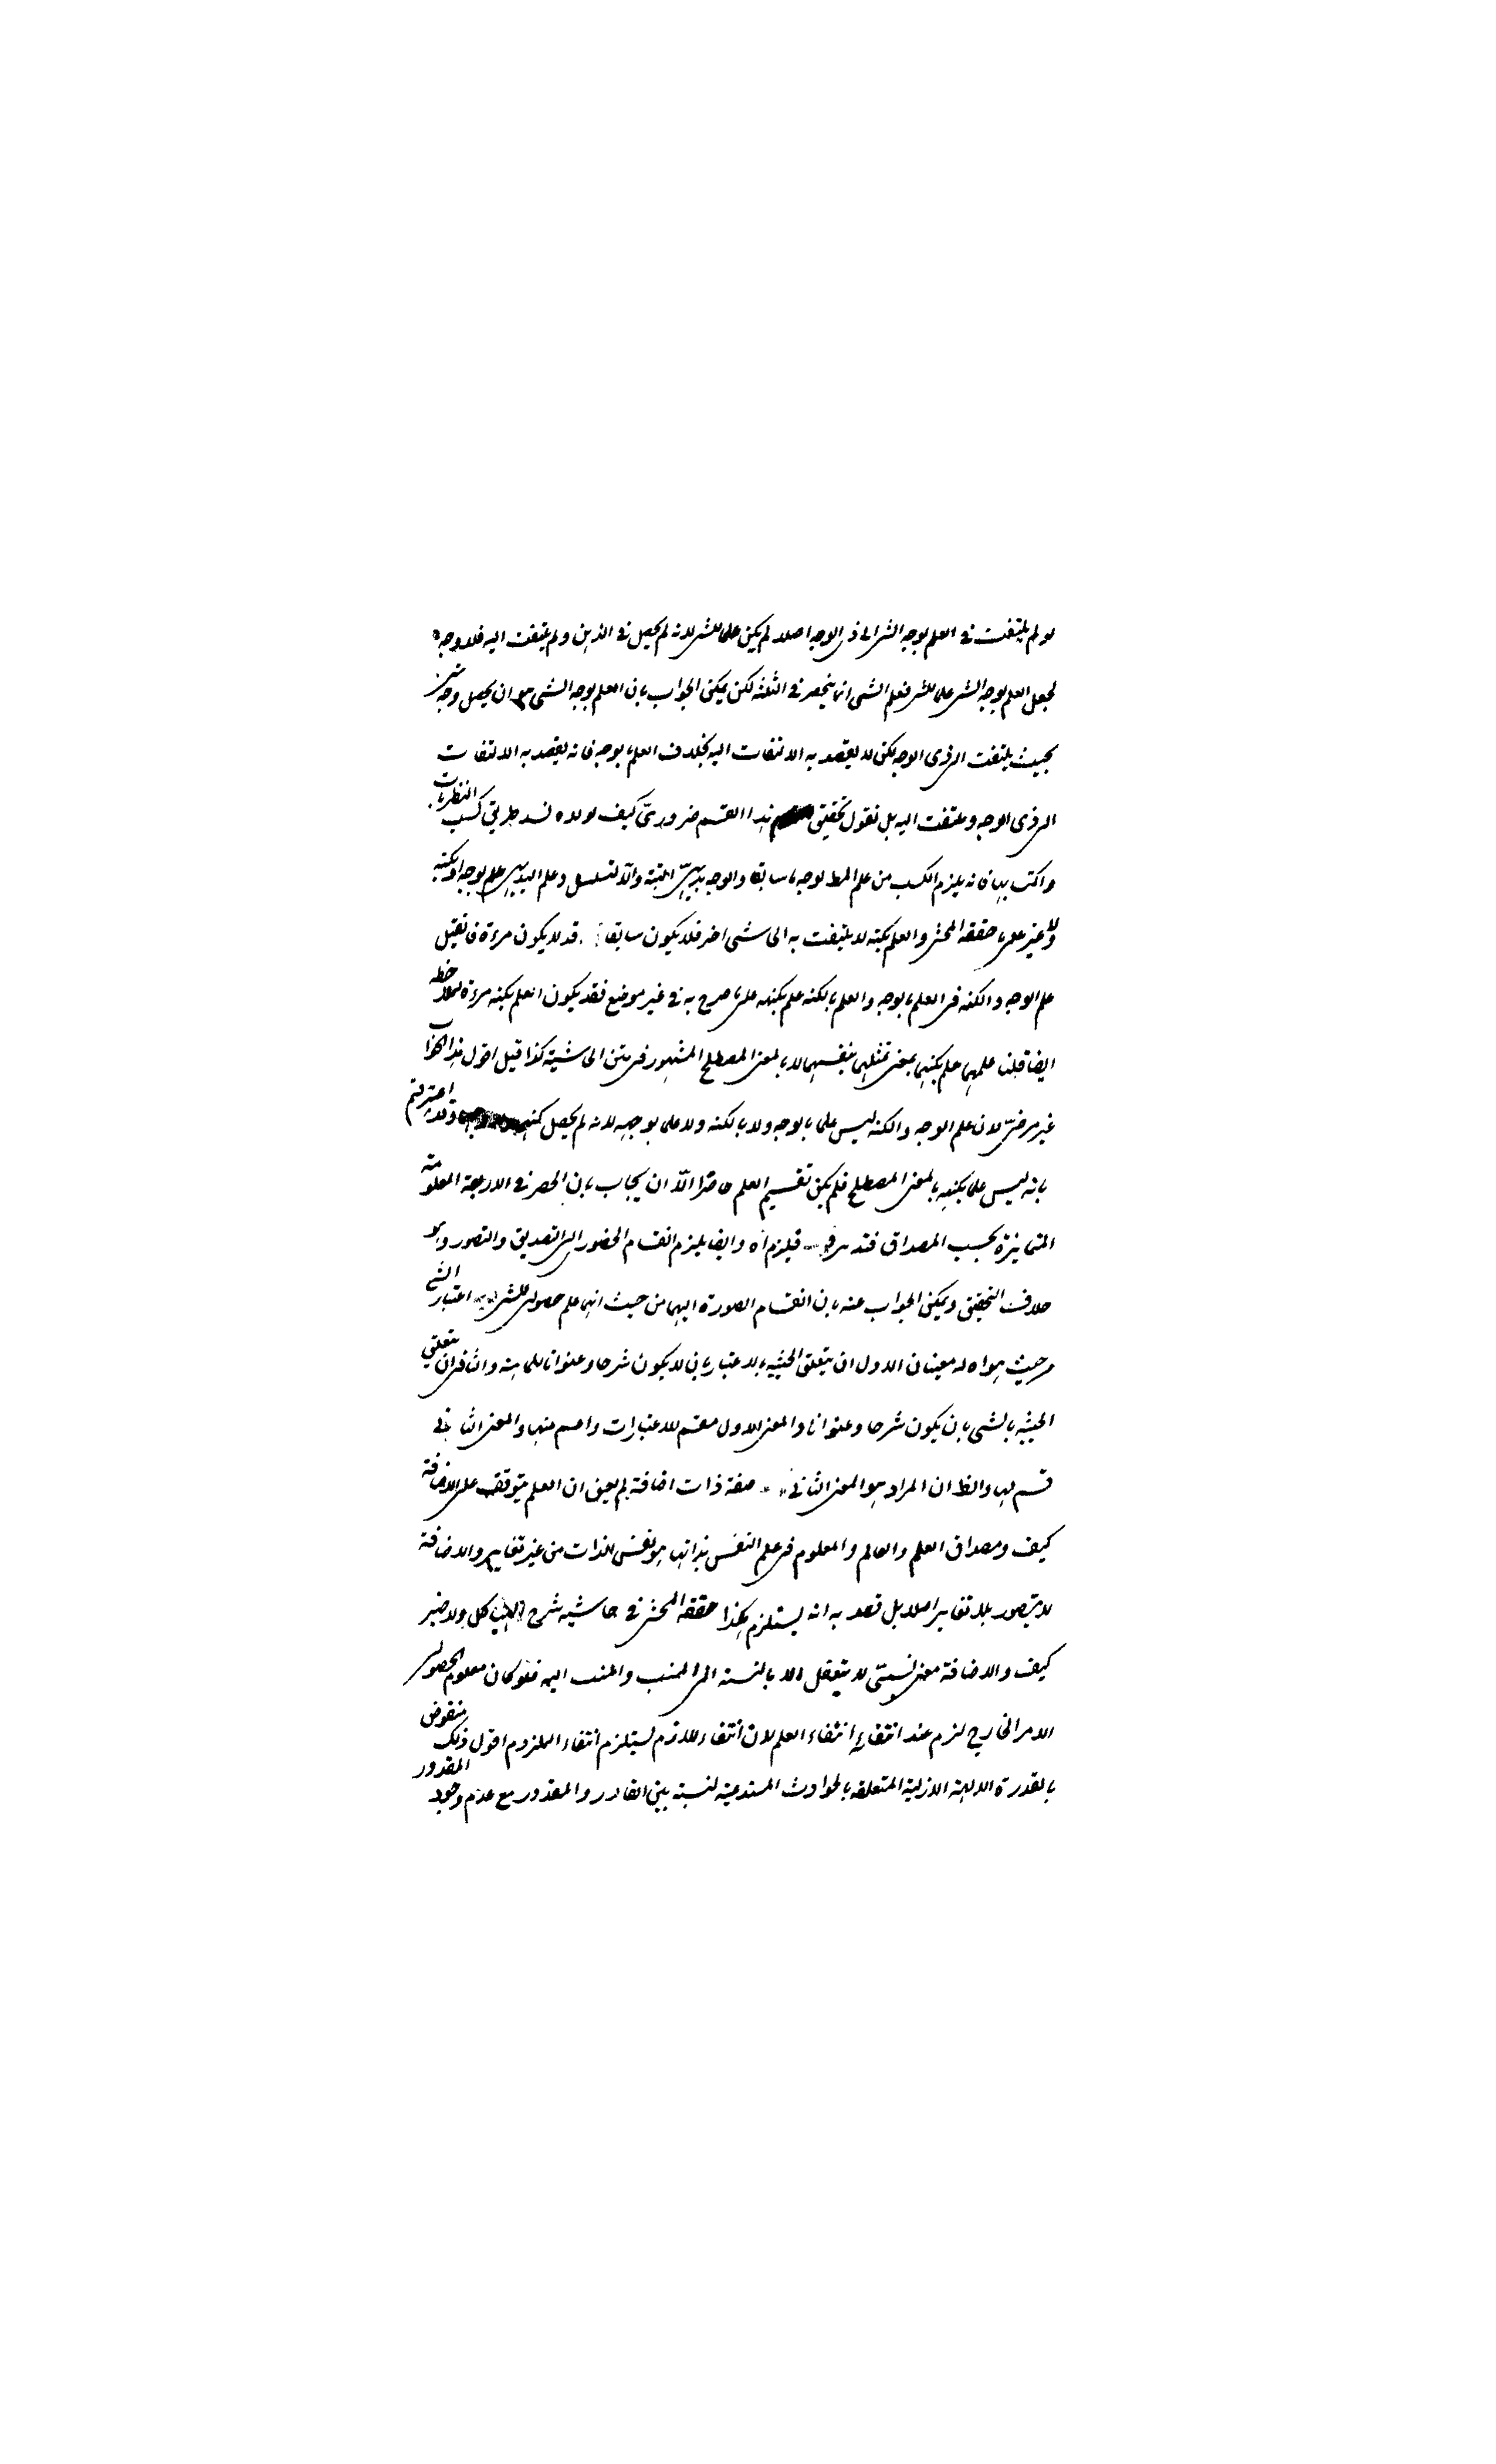 لو لم يلتفت في العلم بوجه الشئ الى ذى الوجه اصلا لم يكن علما للشئ لانه لم يحصل في الذهن ولم يلتفت اليه فلا وجه
لجعل العلم بوجه الشئ علما للشئ فعلم الشئ انما ينحصر في الثلثة لكن يمكن الجواب بان العلم بوجه الشئ هو ان يحصل وجه شئ
بحيث يلتفت الى ذى الوجه لكن لا يقصد به الالتفات اليه بخلاف العلم بوجه فانه يقصد به الالتفات
الى ذى الوجه ويلتفت اليه بل نقول تحقيق هذا القسم ضرورىّ كيف لولاه لسد طريق كسب النظريات
واكتسابها فانه يلزم الكسب من علم المط بوجه ما سابقا والوجه بديهىّ البتة والّا لتسلسل وعلم البديهى علم بوجه او بكنهه
لا غير على ما حققه المحشى والعلم بكنهه لا يلتفت به الى شئ اخر فلا يكون سابقا قد لا يكون مرءة فان قيل
علم الوجه والكنه في العلم بالوجه والعلم بالكنه علم بكنهه على ما صرح به في غير موضع فقد يكون العلم بكنهه مرءة لملاحظة
ايضا قلنا علمهما علم بكنههما بمعنى تمثلهما بنفسهما لا بالمعنى المصطلح المشهور في متن الحاشية كذا قيل اقول هذا الجواب
غير مرضىّ لان علم الوجه والكنه ليس علما بالوجه ولا بالكنه ولا علما بوجهه لانه لم يحصل كنهه وقد اعترفتم
بانه ليس علما بكنهه بالمعنى المصطلح فلم يكن تقسيم العلم حاصرا الّا ان يجاب بان الحصر في الاربعة المعلومة
المتمايزة بحسب المصداق فتدبر فيلزم اه وايضا يلزم انقسام الحضورى الى التصديق والتصور وهو
خلاف التحقيق ويمكن الجواب عنه بان انقسام الصورة اليهما من حيث انهما علم حصولى للشئ اعتبار الشئ
من حيث هو اه له معنيان الاول ان يتعلق الحيثية بالاعتبار بان لا يكون شرحا وعنوانا للماهية والثانى ان يتعلق
الحيثية بالشئ بان يكون شرحا وعنوانا والمعنى الاول مقسم للاعتبارات واعم منها والمعنى الثانى
قسم لها والظ ان المراد هو المعنى الثانى صفة ذات اضافة لم يعن ان العلم يتوقف على الاضافة
كيف ومصداق العلم والعالم والمعلوم في علم النفس بذاتها هو نفس الذات من غير تغاير والاضافة
لا يتصور بلا تغاير اصلا بل قصد به انه يستلزم هكذا حققه المحشى في حاشية شرح الهياكل ولا ضير
كيف والاضافة معنى نسبىّ لا يتعقل الا بالنسبة الى المنتسب والمنتسب اليه فلو كان معلوم الحصولى
الامر الخارجى لزم عند انتفائه انتفاء العلم لان انتفاء اللازم يستلزم انتفاء الملزوم اقول ذلك منقوض
بالقدرة الالهية الازلية المتعلقة بالحوادث المستدعية لنسبة بين القادر والمقدور مع عدم وجود المقدور